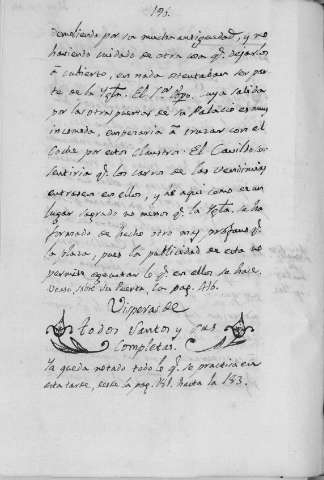 195.
demoliendo por su mucha antiguedad, y no
haviendo cuidado de otra con q.e dejarlos
à cubierto, en nada ostentaban ser par
te de la Ygl.a. El S.or Obpo. cuya salida
por las otras puertas de su Palacio es muy
incomoda, empezaria à cruzar con el
Coche por estos Claustros: El Cavildo con
sentiria q.e los carros de las vendimias
entrasen en ellos, y he aqui como es un
lugar sagrado no menos q.e la Ygl.a se ha
formado de hecho otro mas profano q.e
la plaza, pues la publicidad de esta no
permite egecutar lo q.e en ellos se hace.
Vease, sobre su Puerta, la pag. 416.
Visperas de
todos Santos y sus
Completas.
Ya queda notado todo lo q.e se practica en
esta tarde, desde la pag. 151. hasta la 153.